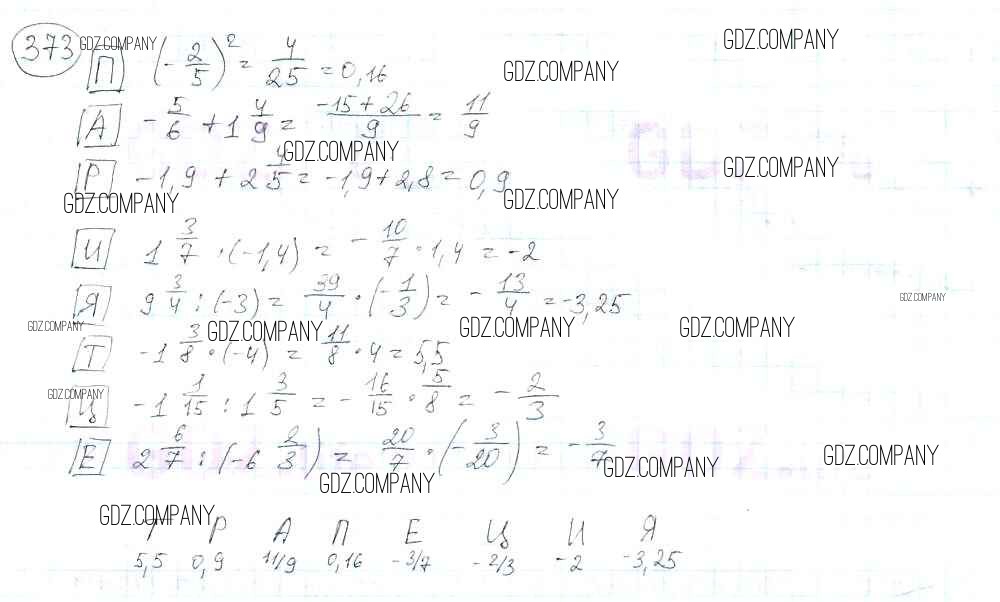 373 GDZ.COMPANY GDZ.COMPANY
П (-2/5)² = 4/25 = 0,16 GDZ.COMPANY
А -5/6 + 1 4/9 = (-15 + 26)/9 = 11/9
GDZ.COMPANY GDZ.COMPANY
Р -1,9 + 2 4/5 = -1,9 + 2,8 = 0,9
GDZ.COMPANY GDZ.COMPANY
И 1 3/7 · (-1,4) = -10/7 · 1,4 = -2
Я 9 3/4 : (-3) = 39/4 · (-1/3) = -13/4 = -3,25 GDZ.COMPANY
GDZ.COMPANY GDZ.COMPANY GDZ.COMPANY GDZ.COMPANY
Т -1 3/8 · (-4) = 11/8 · 4 = 5,5
GDZ.COMPANY
Ц -1 1/15 : 1 3/5 = -16/15 · 5/8 = -2/3
Е 2 6/7 : (-6 2/3) = 20/7 · (-3/20) = -3/7
GDZ.COMPANY GDZ.COMPANY GDZ.COMPANY
GDZ.COMPANY
Т Р А П Е Ц И Я
5,5 0,9 11/9 0,16 -3/7 -2/3 -2 -3,25